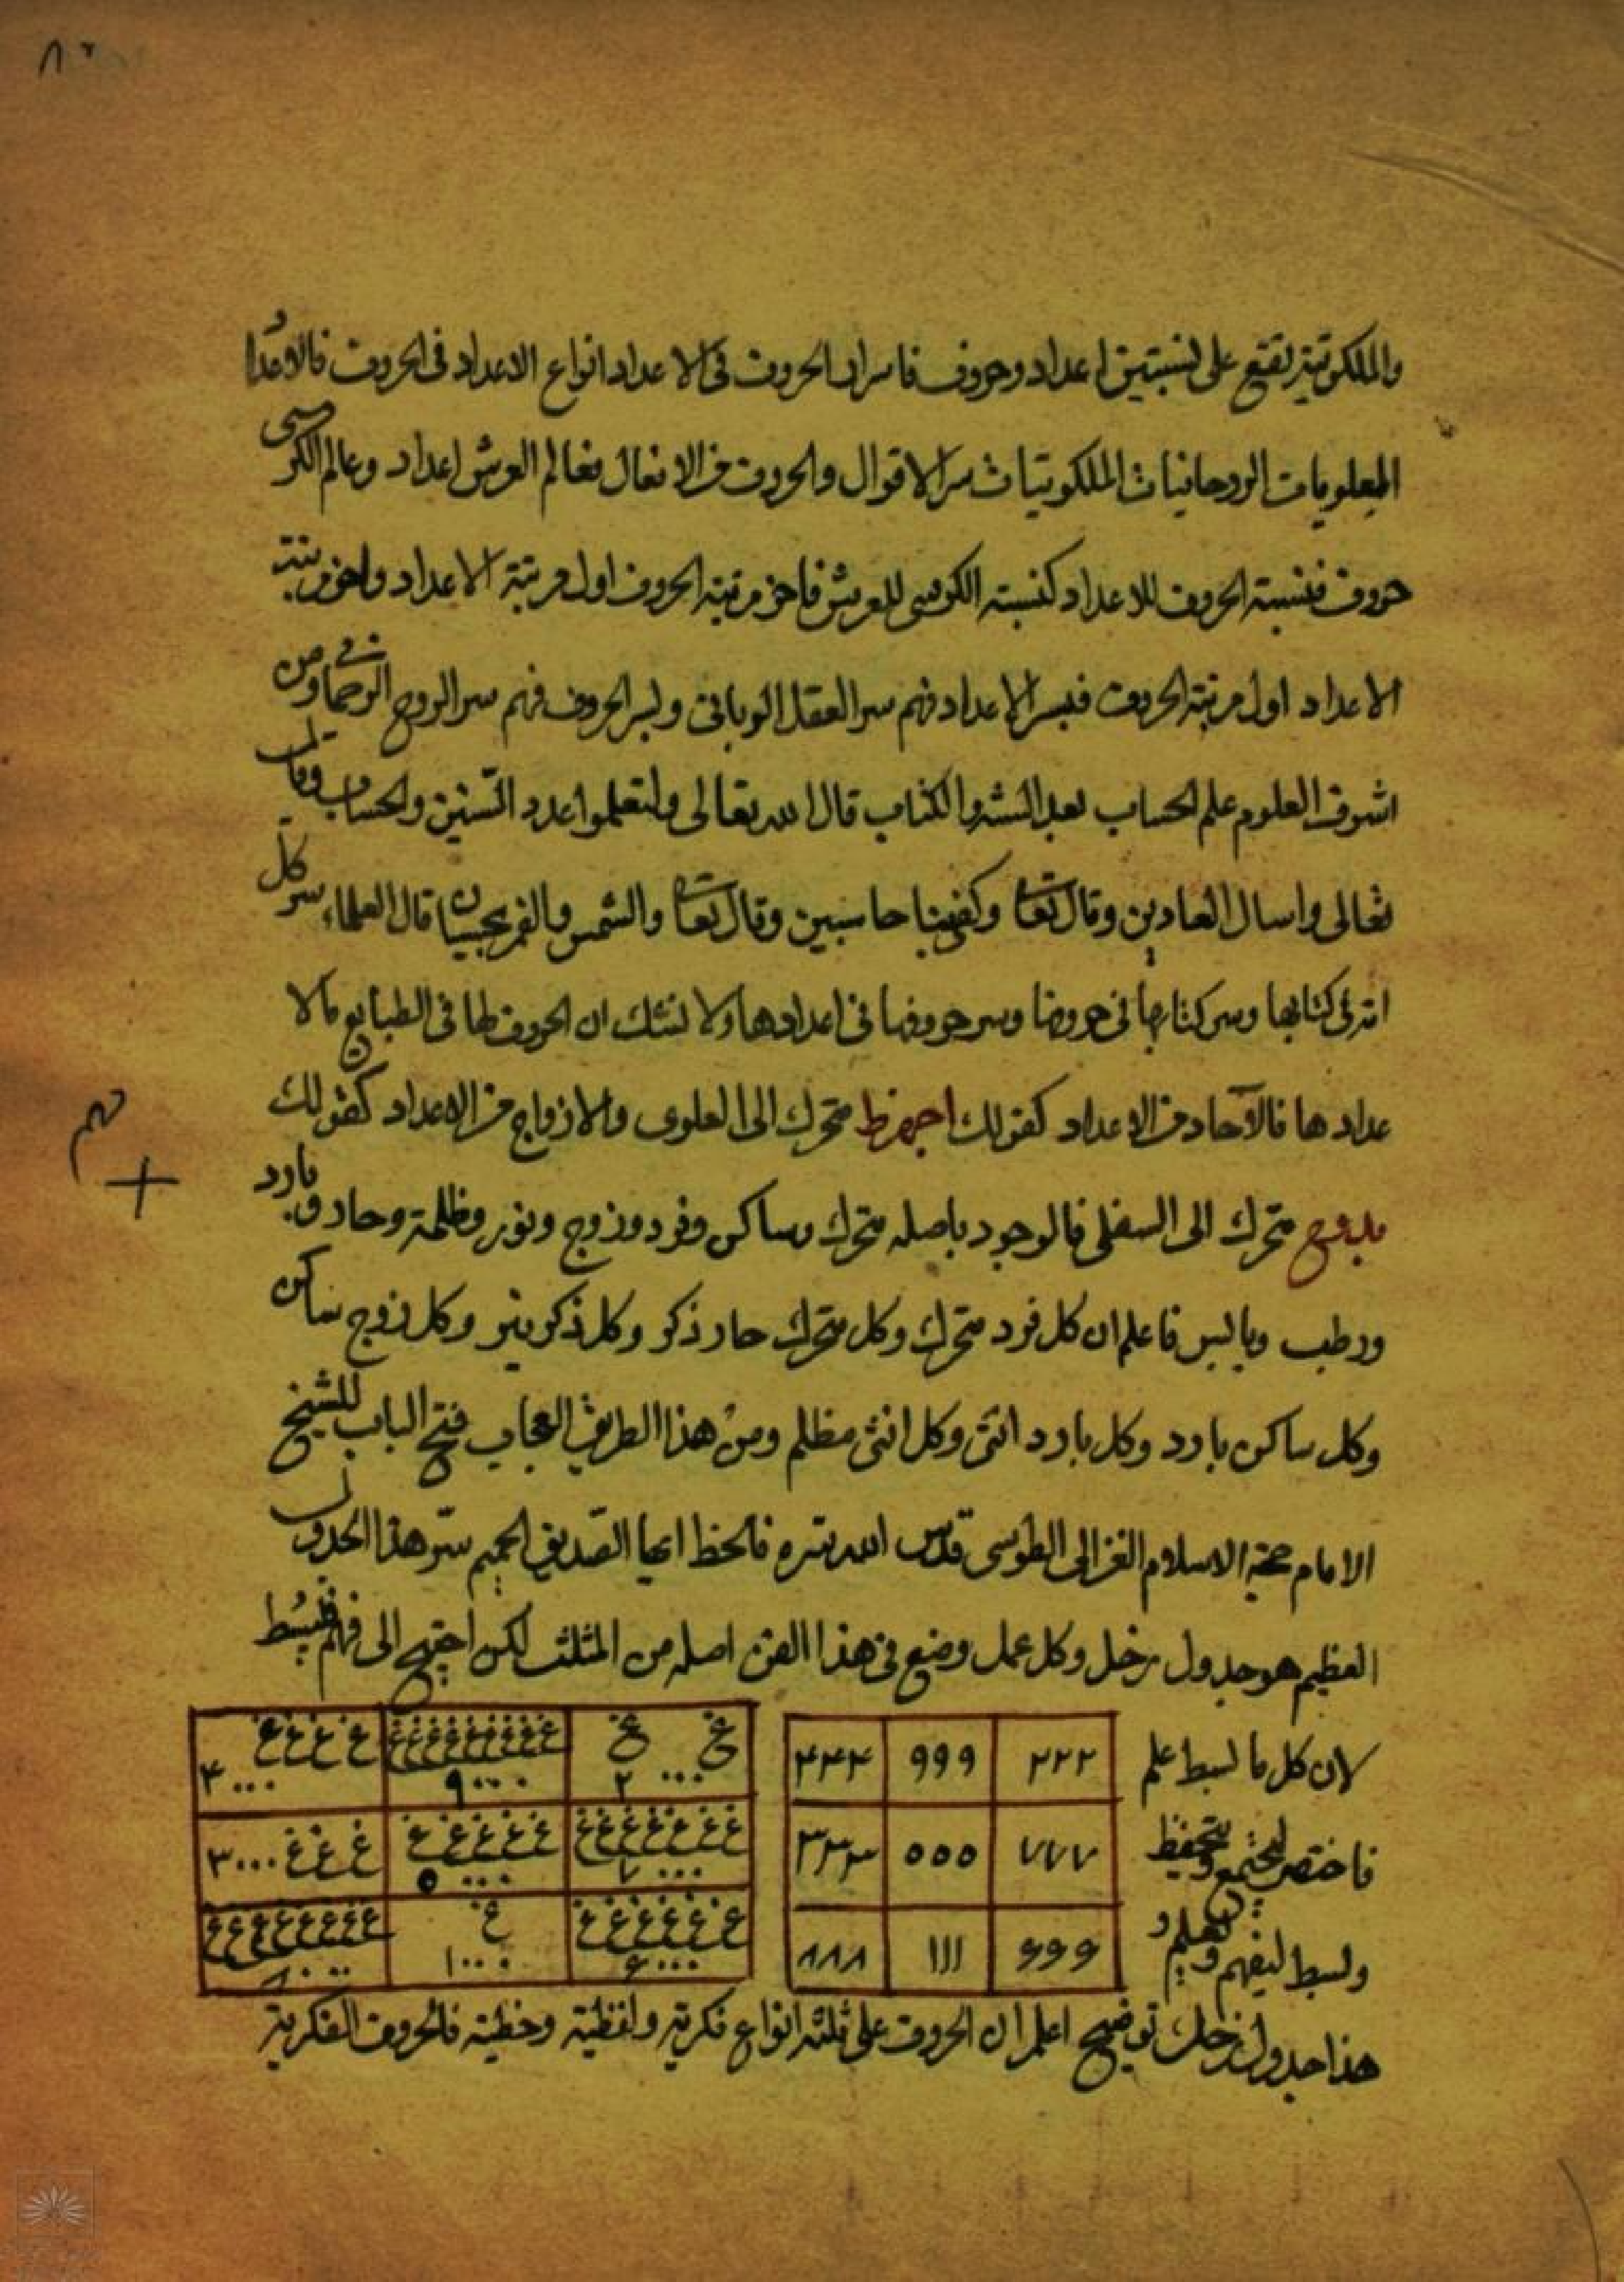 والملكوتية تقع على نسبتين اعداد وحروف فاسرار الحروف فى الاعداد انواع الاعداد فى الحروف فالاعداد
العلويات الروحانيات الملكوتيات سر الاقوال والحروف من الافعال فعالم العرش اعداد وعالم الكرسى
حروف فنسبة الحروف للاعداد كنسبة الكرسى للعرش فاخر مرتبة الحروف اول مرتبة الاعداد واخر مرتبة
الاعداد اول مرتبة الحروف فبسر الاعداد فهم سر العقل الربانى وبسر الحروف فهم سر الروح الرحمانى ومن
اشرف العلوم علم الحساب بعد السنة والكتاب قال الله تعالى ولتعلموا عدد السنين والحساب وقال
تعالى واسال العادين وقال تعالى وكفى بنا حاسبين وقال تعالى والشمس والقمر بحسبان قال العلماء سر كل
امة فى كتابها وسر كتابها فى حروفها وسر حروفها فى اعدادها ولا نشك ان الحروف لها فى الطبايع كالا
عداد ها فالآحاد من الاعداد كقولك اجهزط متحرك الى العلوى والازواج من الاعداد كقولك
بدوح متحرك الى السفلى فالوجود باصله متحرك وساكن وفرد وزوج ونور وظلمة وحار وبارد
ورطب ويابس فاعلم ان كل فرد متحرك وكل متحرك حار ذكر وكل ذكر نير وكل زوج ساكن
وكل ساكن بارد وكل بارد انثى وكل انثى مظلم ومن هذا الطريق العجاب فتح الباب للشيخ
الامام حجة الاسلام الغزالى الطوسى قدس الله سره فالحظ ايها الصديق الحميم سر هذا الجدول
العظيم هو جدول زحل وكل عمل وضع فى هذا الفن اصله من المثلث لكن احتيج الى فهم فبسط
لان كل ما بسط علم
فاختصر ليجتمع ويحفظ
وبسط ليفهم ويعلم و
۲۲۲ ۹۹۹ ۴۴۴
۷۷۷ ۵۵۵ ۳۳۳
۶۶۶ ۱۱۱ ۸۸۸
غ غ ۲۰۰۰ غغغغغغغغغ ۹۰۰۰ غ غ غ غ ۴۰۰۰
غ غ غ غ غ غ غ ۷۰۰۰ غ غ غ غ غ ۵۰۰۰ غ غ غ ۳۰۰۰
غ غ غ غ غ غ ۶۰۰۰ غ ۱۰۰۰ غغغغغغغغ ۸۰۰۰
هذا جدول زحل توضيح اعلم ان الحروف على ثلثة انواع فكرية ولفظية وخطية فالحروف الفكرية